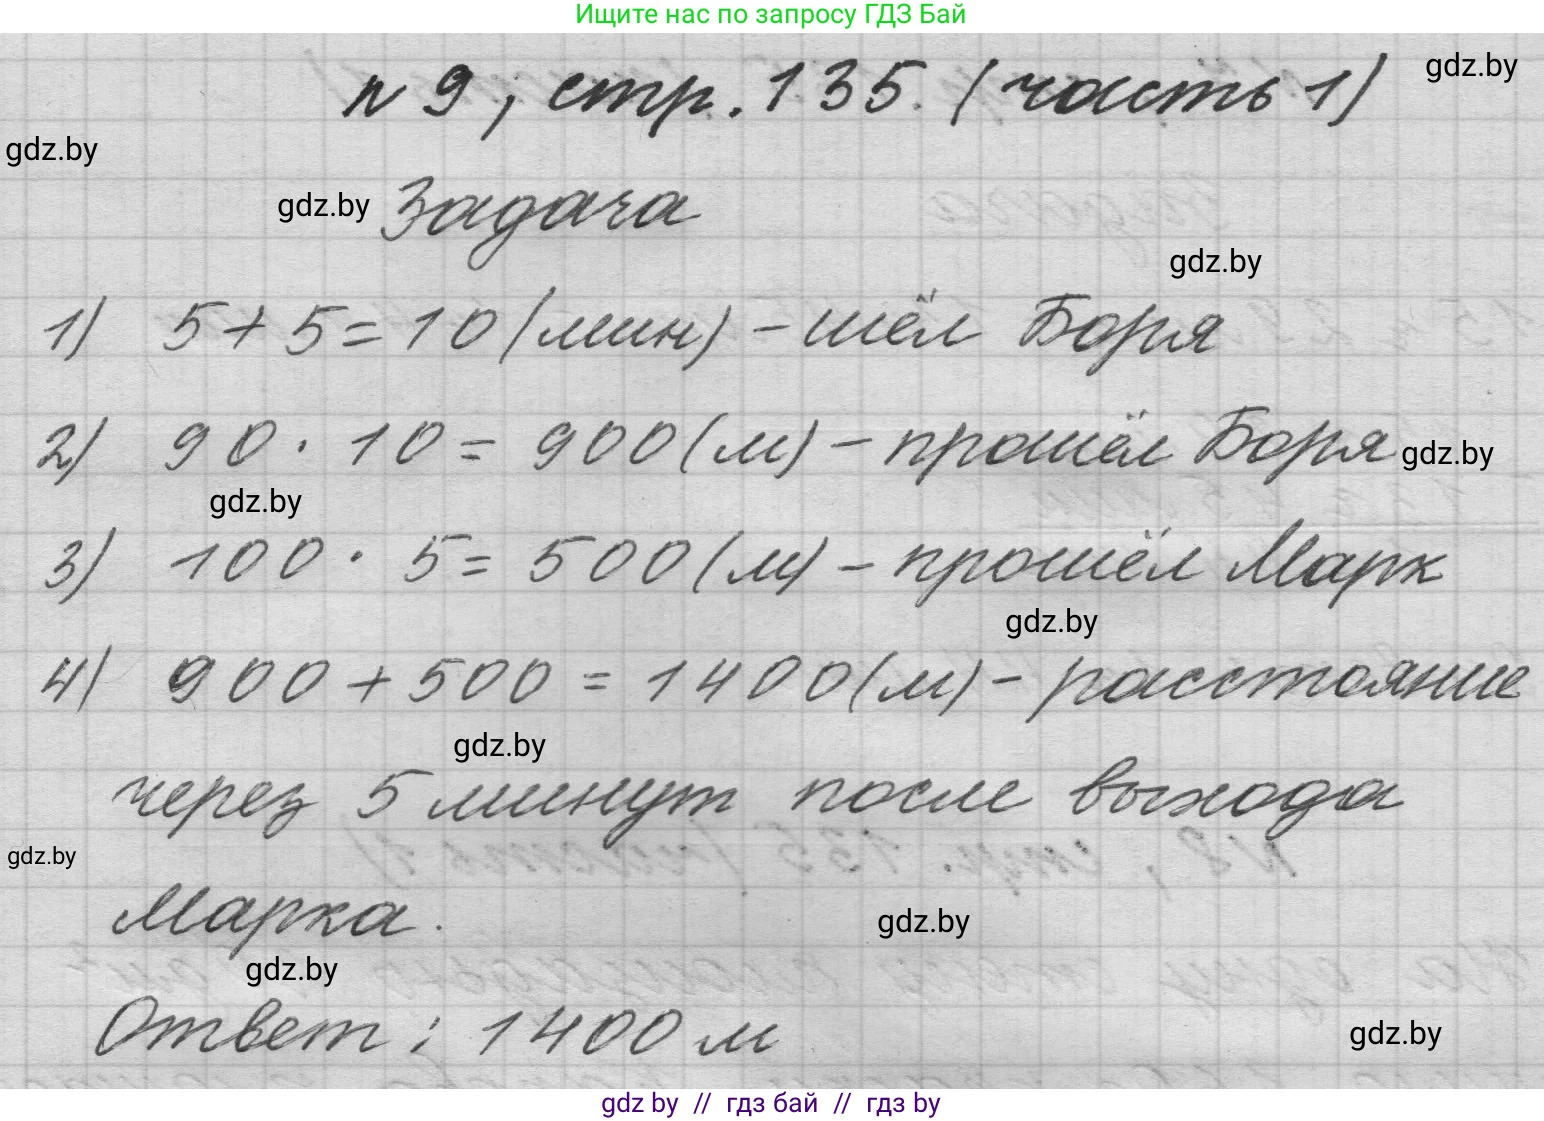 Ищите нас по запросу ГДЗ Бай
n 9, стр. 135. (часть 1)
gdz.by
gdz.by
gdz.by Задача
gdz.by
1) 5 + 5 = 10 (мин) - шёл Боря
2) 90 · 10 = 900 (м) - прошёл Боря gdz.by
gdz.by
3) 100 · 5 = 500 (м) - прошёл Марк
gdz.by
4) 900 + 500 = 1400 (м) - расстояние
gdz.by
через 5 минут после выхода
gdz.by
Марка.
gdz.by
gdz.by
Ответ: 1400 м
gdz.by
gdz by // гдз бай // гдз by